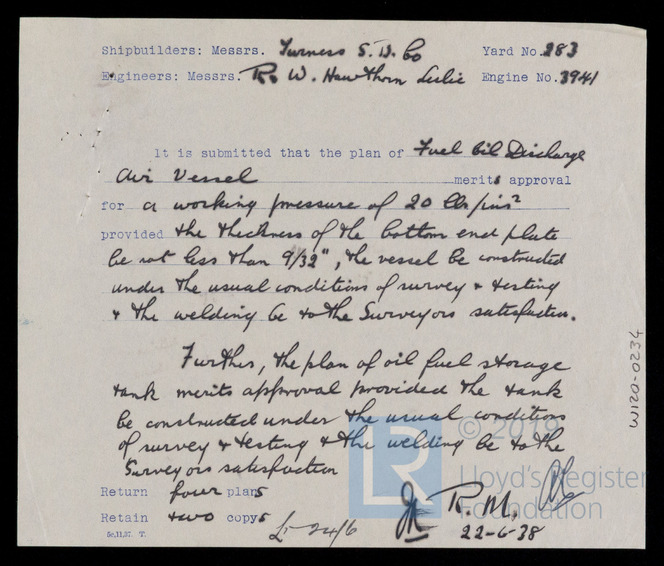 Shipbuilders: Messrs. Furness S.B. Co Yard No. 283
Engineers: Messrs. R. & W. Hawthorn Leslie Engine No. 3941
It is submitted that the plan of Fuel Oil Discharge
Air Vessel merits approval
for a working pressure of 20 lbs/ins²
provided the thickness of the bottom end plate
be not less than 9/32", the vessel be constructed
under the usual conditions of survey & testing
& the welding be to the Surveyors satisfaction.
Further, the plan of oil fuel storage
tank merits approval provided the tank
be constructed under the usual conditions
of survey & testing & the welding be to the
Surveyors satisfaction
Return four plans
Retain two copys
5c,11,37. T.
24/6
R.M.
22-6-38
W120-0234
© 2019
LR
Lloyd's Register
Foundation